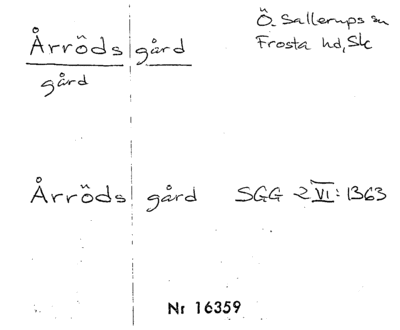 Årröds gård
gård
Ö. Sallerups sn
Frosta hd, Sk
Årröds gård SGG 2 VI: 1363
Nr 16359